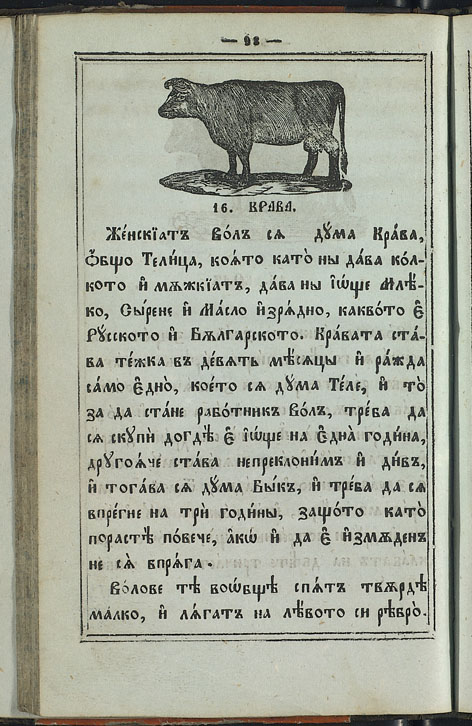 — 98 —
16. КРАВА.
Же́нскїатъ Во́лъ сѧ ду́ма Кра́ва,
Ѻ҆́бщо Тели́ца, коѧ́то като̀ ны да́ва ко́л-
кото и҆ мѫ́жкїатъ, да́ва ны і҆ѡ́ще Млѣ́-
ко, Сы́рене и҆ Ма́сло и҆зрѧ́дно, какво́то Е҆̀
Ру́сското и҆ Бѫ́лгарското. Кра́вата ста́-
ва те́жка въ де́вѧть мѣ́сѧцы и҆ ра́жда
са́мо Е҆дно̀, кое́то сѧ ду́ма Те́ле, и҆ то̀
за да ста́не рабо́тникъ Во́лъ, тре́ба да
сѧ скупѝ догдѣ̀ Е҆̀ і҆ѡ́ще на Е҆дна̀ годи́на,
друго́ѧче ста́ва непреклони́мъ и҆ ди́въ,
и҆ тога́ва сѧ̀ ду́ма Бы́къ, и҆ тре́ба да сѧ
впре́гне на трѝ годи́ны, защо́то като̀
порастѣ̀ по́вече, а҆́кѡ и҆ да Е҆̀ и҆змѫ́денъ
не сѧ̀ впрѧ́га.
Во́лове тѣ̀ воѡбщѐ спѧ́тъ твѫ́рдѣ
ма́лко, и҆ лѧ́гатъ на лѣ́вото си ребро̀.